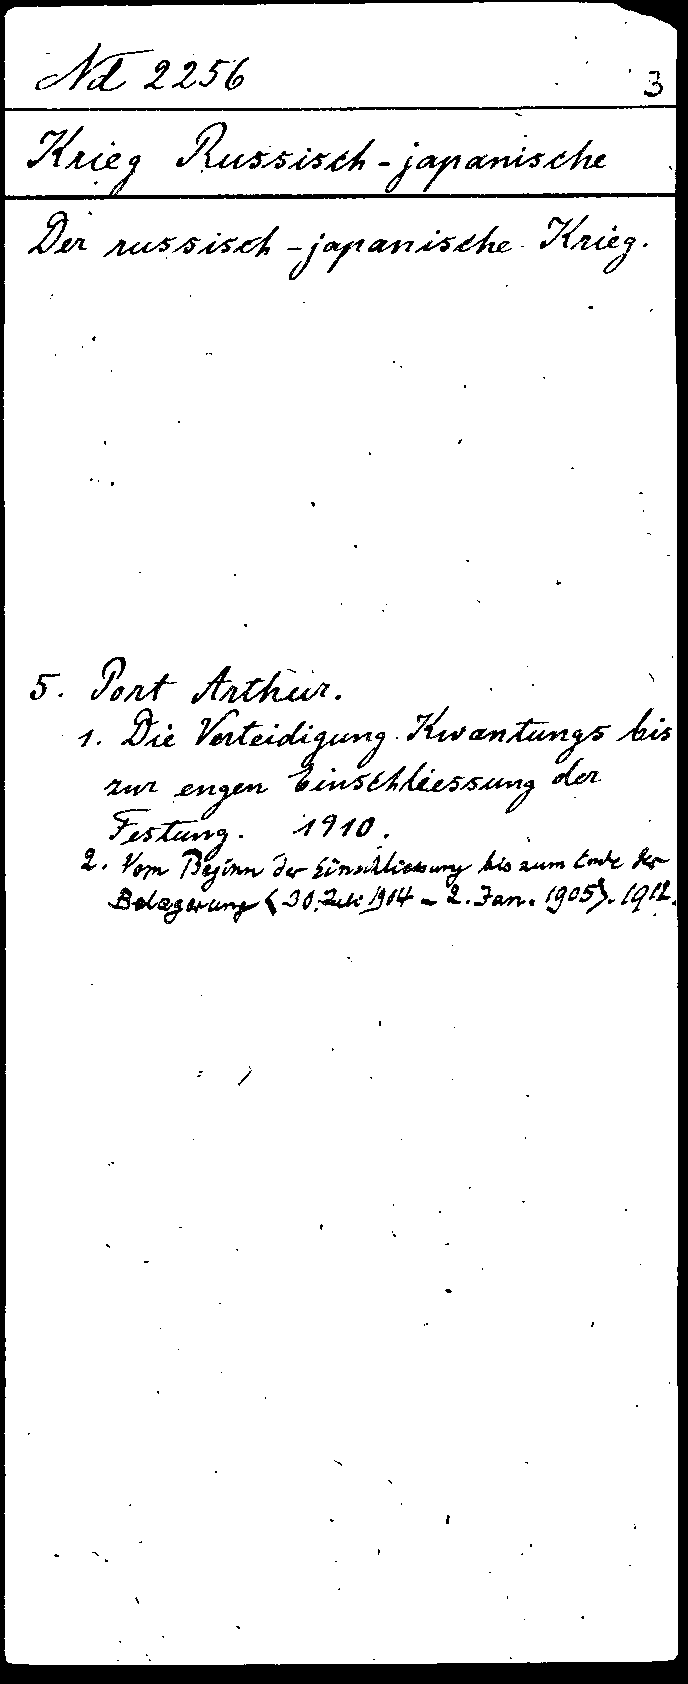 Nd 2256 3
Krieg Russisch-japanische
Der russisch-japanische Krieg.
5. Port Arthur.
1. Die Verteidigung Kwantungs bis
zur engen Einschliessung der
Festung. 1910.
2. Vom Beginn der Einschliessung bis zum Ende der
Belagerung <30. Juli 1904 - 2. Jan. 1905>. 1912.